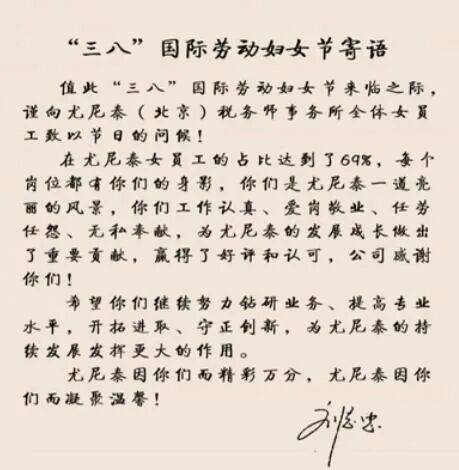 “三八”国际劳动妇女节寄语
值此“三八”国际劳动妇女节来临之际，
谨向尤尼泰（北京）税务师事务所全体女员
工致以节日的问候！
在尤尼泰女员工的占比达到了69%，每个
岗位都有你们的身影，你们是尤尼泰一道亮
丽的风景，你们工作认真、爱岗敬业、任劳
任怨、无私奉献，为尤尼泰的发展成长做出
了重要贡献，赢得了好评和认可，公司感谢
你们！
希望你们继续努力钻研业务、提高专业
水平，开拓进取、守正创新，为尤尼泰的持
续发展发挥更大的作用。
尤尼泰因你们而精彩万分，尤尼泰因你
们而凝聚温馨！